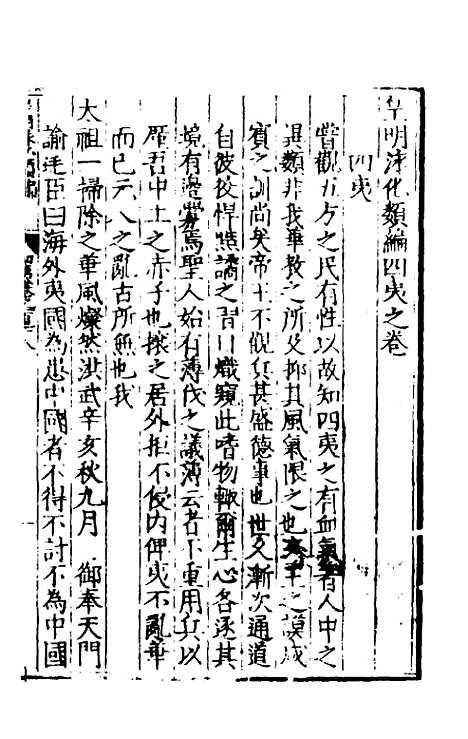 皇明泳化類編四夷之卷
四夷
嘗觀五方之民有性以故知四夷之有血氣者人中之
異類非我華教之所及抑其風氣限之也
賓之訓尚矣帝王不觀兵甚盛德事也世久漸次通道
自彼狡悍黠譎之習日熾窺此嗜物輒爾生心各逐其
境有邊釁焉聖人始有薄伐之議薄云者不重用兵以
歷吾中土之赤子也攘之居外拒不侵內俾夷不亂華
而已元人之亂古所無也我
太祖一掃除之華風燦然洪武辛亥秋九月 御奉天門
諭廷臣曰海外夷國為患中國者不得不討不為中國